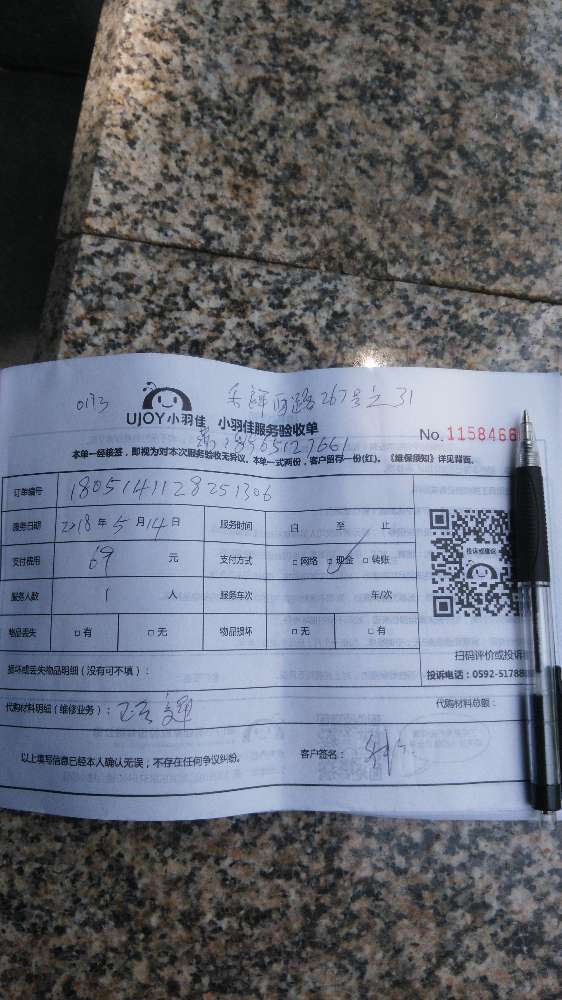 0173
路267号之31
UJOY小羽佳 小羽佳服务验收单
No. 1158466
本单一经核签，即视为对本次服务验收无异议。本单一式两份，客户留存一份(红)。《维保须知》详见背面。
订单编号 1805141128251306
服务日期 2018年5月14日 服务时间 自 至 止
支付费用 69 元 支付方式 □网络 ☑现金 □转账
服务人数 1 人 服务车次 车/次
物品丢失 □有 □无 物品损坏 □无 □有
投诉或建议
扫码评价或投诉
投诉电话：0592-51788
损坏或丢失物品明细（没有可不填）：
代购材料明细（维修业务）： 代购材料总额：
以上填写信息已经本人确认无误，不存在任何争议纠纷。 客户签名：